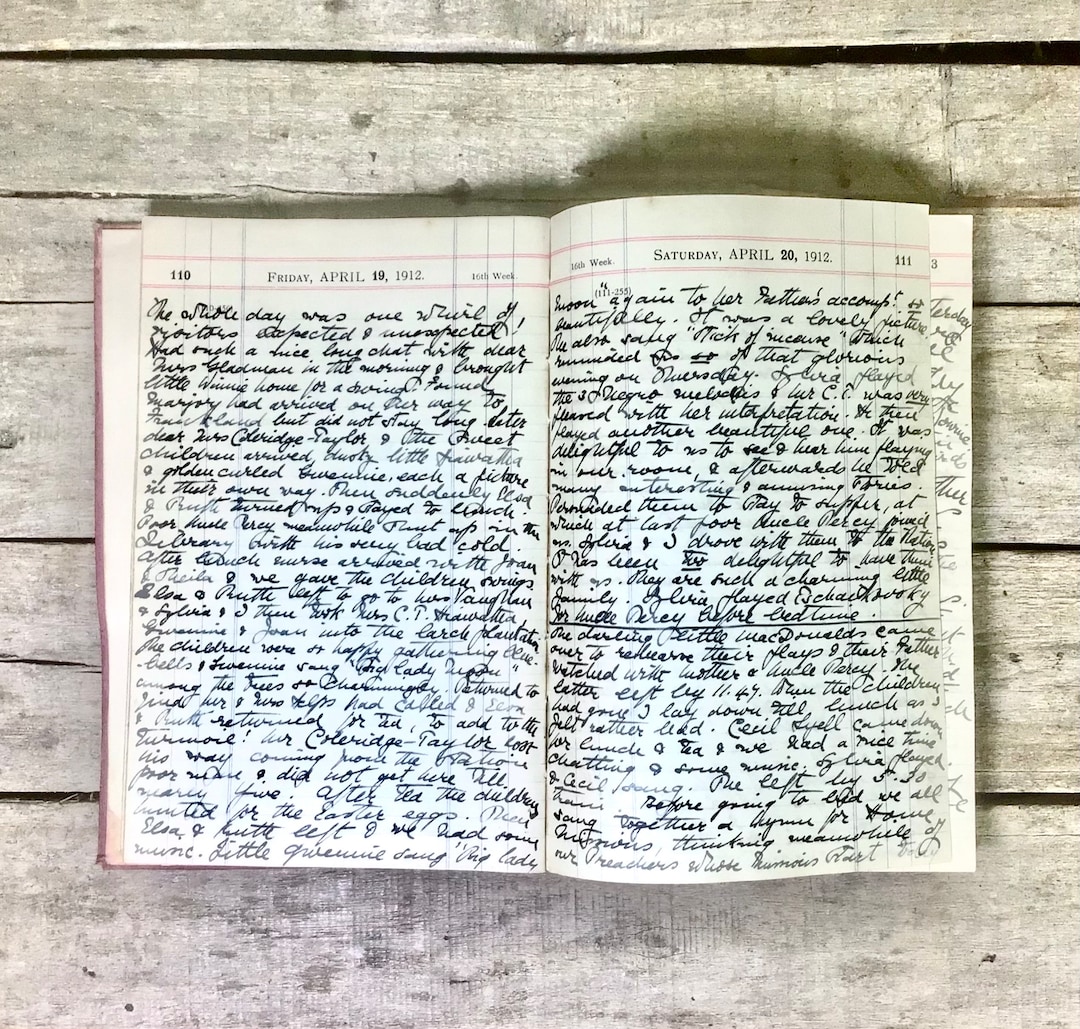 110 FRIDAY, APRIL 19, 1912. 16th Week.
The whole day was one whirl of
visitors expected & unexpected
Had such a nice long chat with dear
Mrs Gladman in the morning & brought
little Winnie home for a swing. Found
Marjory had arrived on her way to
Frankland but did not stay long. Later
dear Mrs Coleridge-Taylor & the sweet
children arrived, dusky little Hiawatha
& golden curled Gwennie, each a picture
in their own way. Then suddenly Elsa
& Ruth turned up & stayed to lunch.
Poor Uncle Percy meanwhile shut up in the
Library with his very bad cold.
After lunch nurse arrived with Joan
& Sheila & we gave the children swings
Elsa & Ruth left to go to Mrs Vaughan
& Sylvia & I then took Mrs C.T. Hiawatha
Gwennie & Joan into the larch plantation
The children were so happy gathering blue-
bells & Gwennie sang "Big lady moon"
among the trees so charmingly. Returned to
find Mr & Mrs had called & Elsa
& Ruth returned for tea, to add to the
turmoil! Mr Coleridge-Taylor lost
his way coming from the Station
poor man & did not get here till
nearly five. After tea the children
hunted for the Easter eggs. Then
Elsa & Ruth left & we had some
music. Little Gwennie sang 'Big lady
16th Week. SATURDAY, APRIL 20, 1912. 111
(111-255)
moon" again to her Father's accompt.
beautifully. It was a lovely picture.
He also sang "Stick of incense" which
reminded us so of that glorious
evening on Thursday. Sylvia played
the 3 Negro melodies & Mr C.T. was very
pleased with her interpretation. He then
played another beautiful one. It was
delightful to us to see & hear him playing
in our room, & afterwards he told
many interesting & amusing stories.
Persuaded them to stay to supper, at
which at last poor Uncle Percy joined
us. Sylvia & I drove with them to the Station
It has been too delightful to have them
with us. They are such a charming little
family. Sylvia played Tschaikovsky
for Uncle Percy before bedtime.
The darling little MacDonalds came
over to rehearse their plays & their Father
watched with mother & Uncle Percy. The
latter left by 11.47. When the children
had gone I lay down till lunch as I
felt rather dead. Cecil Lyell came down
for lunch & tea & we had a nice time
chatting & some music. Sylvia played
& Cecil sang. He left by 5.30
train. Before going to bed we all
sang together a hymn for Home
Missions, thinking meanwhile of
our Preachers whose Missions start
3